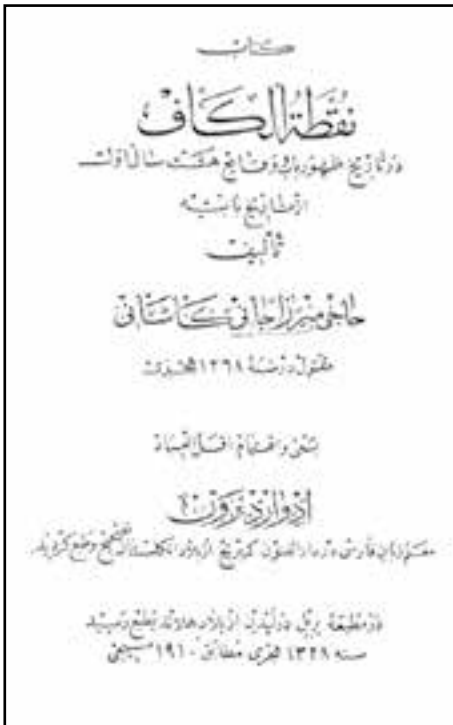 کتاب
نُقطَةُ الکاف
در تاریخ ظهور باب و وقایع هشت سال اوّل
از تاریخ بابیّه
تألیف
حاجی میرزا جانی کاشانی
مقتول در سنهٔ ۱۲۶۸ هجری
بسعی و اهتمام اقلّ العباد
ادوارد برون
معلّم زبان فارسی در دار الفنون کمبریج از بلاد انگلستان تصحیح و طبع گردید
در مطبعهٔ بریل در لیدن از بلاد هلاند بطبع رسید
سنه ۱۳۲۸ هجری مطابق ۱۹۱۰ مسیحی